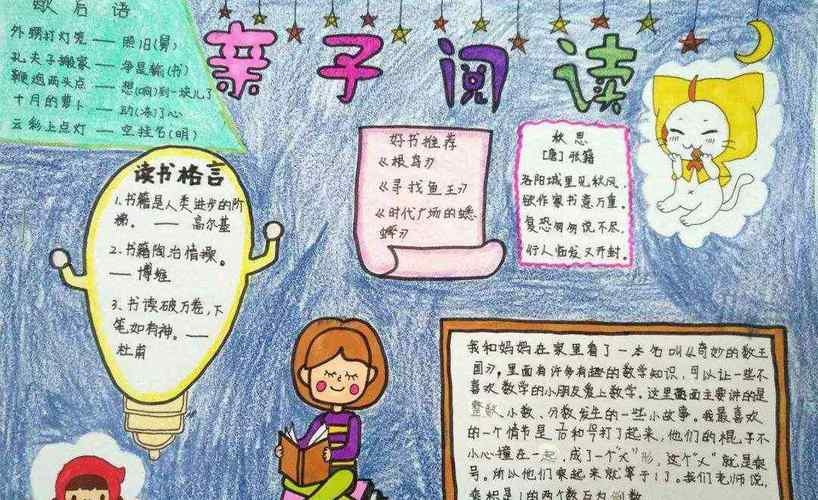 歇后语
外甥打灯笼——照旧(舅)
孔夫子搬家——净是输(书)
鞭炮两头点——想(响)到一块儿了
十月的萝卜——动(冻)了心
云彩上点灯——空挂名(明)
亲子阅读
读书格言
1.书籍是人类进步的阶
梯。——高尔基
2.书籍陶冶情操。
——博雅
3.书读破万卷,下
笔如有神。——
杜甫
好书推荐
《根鸟》
《寻找鱼王》
《时代广场的蟋
蟀》
秋思
[唐]张籍
洛阳城里见秋风,
欲作家书意万重。
复恐匆匆说不尽,
行人临发又开封。
我和妈妈在家里看了一本名叫《奇妙的数王
国》,里面有许多有趣的数学知识,可以让一些不
喜欢数学的小朋友爱上数学。这里面主要讲的是
整数、小数、分数发生的一些小故事。我最喜欢
的一个情节是 和 打了起来,他们的棍子不
小心撞在一起,成了个"×"形,这个"×"就是乘
号。所以他们乘起来就等于1了。我们老师说,
乘积是1的两个数互为倒数